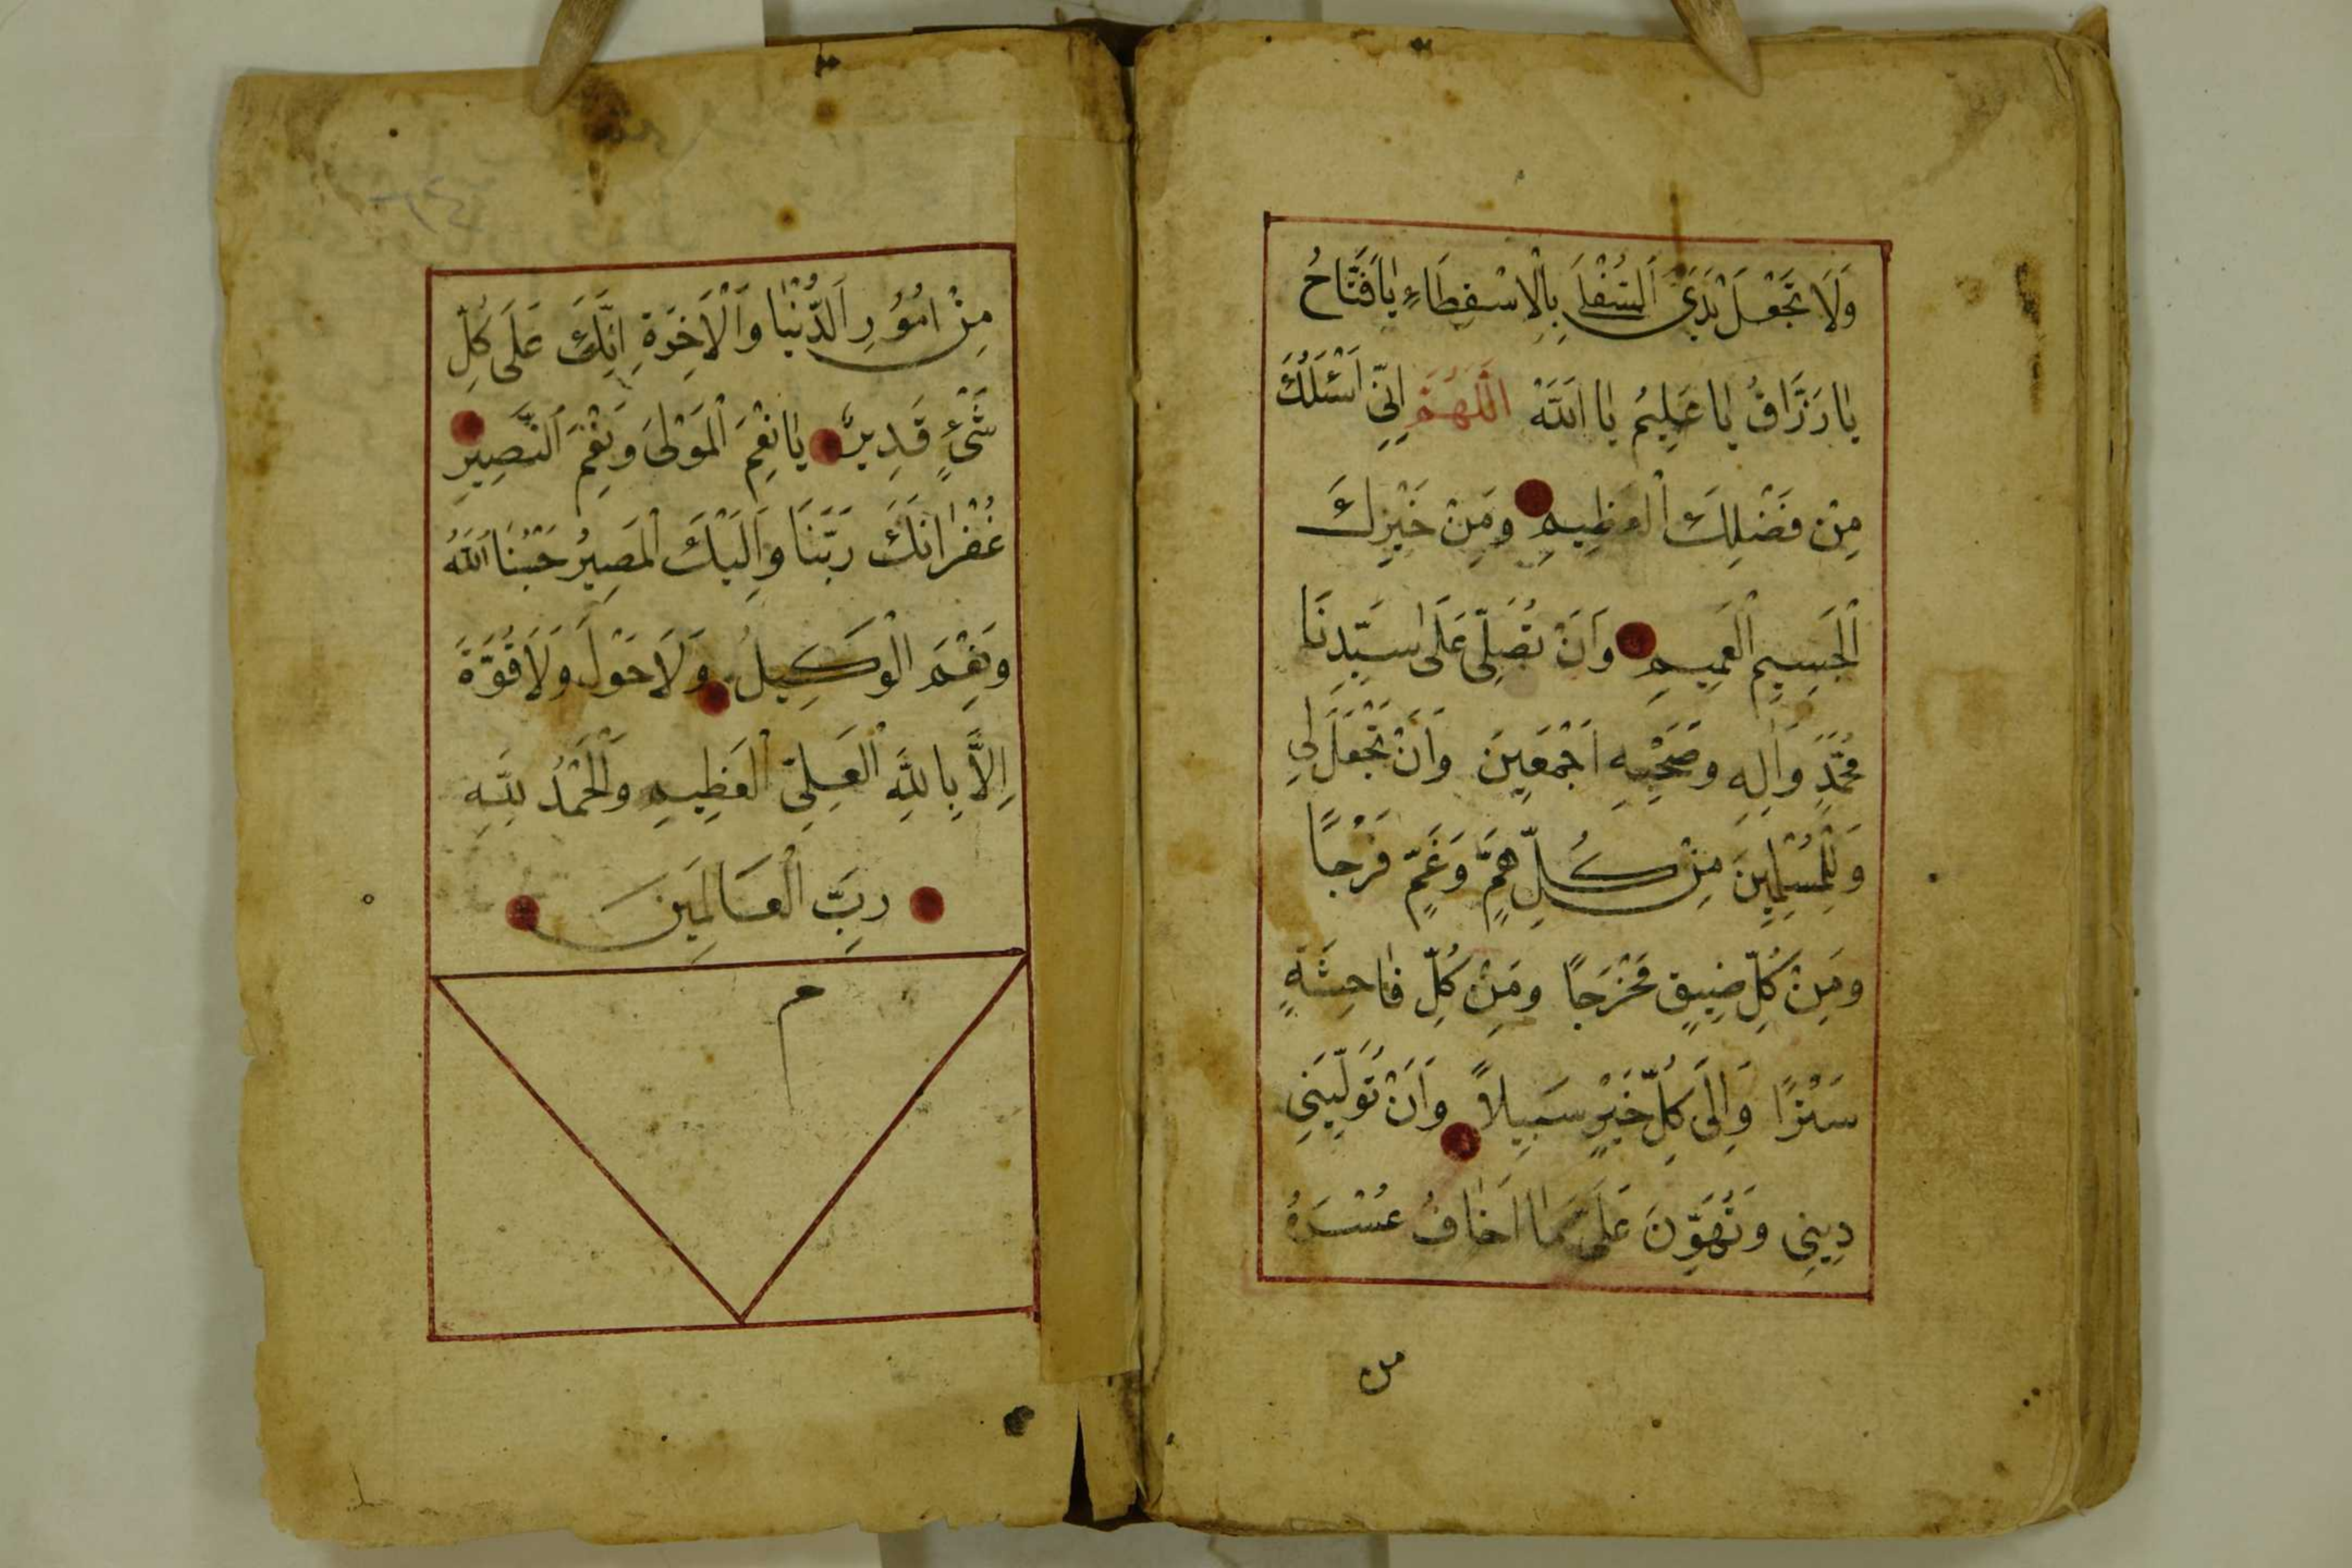 وَلَا تَجْعَلْ يَدَيَّ السُّفْلَى بِالْاِسْفِطَاءِ يَا فَتَّاحُ
يَا رَزَّاقُ يَا عَلِيمُ يَا اَللّٰهْ اَللّٰهُمَّ اِنِّي اَسْئَلُكَ
مِنْ فَضْلِكَ الْعَظِيمِ وَمِنْ خَيْرِكَ
الْجَسِيمِ الْعَمِيمِ وَاَنْ تُصَلِّيَ عَلَى سَيِّدِنَا
مُحَمَّدٍ وَاٰلِهِ وَصَحْبِهِ اَجْمَعِينَ وَاَنْ تَجْعَلَ لِي
وَلِلْمُسْلِمِينَ مِنْ كُلِّ هَمٍّ وَغَمٍّ فَرْجًا
وَمِنْ كُلِّ ضِيقٍ مَخْرَجًا وَمِنْ كُلِّ فَاحِشَةٍ
سَتْرًا وَاِلَى كُلِّ خَيْرٍ سَبِيلًا وَاَنْ تُوَلِّيَنِي
دِينِي وَتُهَوِّنَ عَلَيَّ مَا اَخَافُ عُسْرَهُ
من
مِنْ اُمُوُرِ الدُّنْيَا وَالْاٰخِرَةِ اِنَّكَ عَلَى كُلِّ
شَيْءٍ قَدِيرٌ يَا نِعْمَ الْمَوْلَى وَنِعْمَ النَّصِيرِ
غُفْرَانَكَ رَبَّنَا وَاِلَيْكَ الْمَصِيرُ حَسْبُنَا اللّٰهُ
وَنِعْمَ الْوَكِيلُ وَلَا حَوْلَ وَلَا قُوَّةَ
اِلَّا بِاللّٰهِ الْعَلِيِّ الْعَظِيمِ وَالْحَمْدُ لِلّٰهِ
رَبِّ الْعَالَمِينَ
م